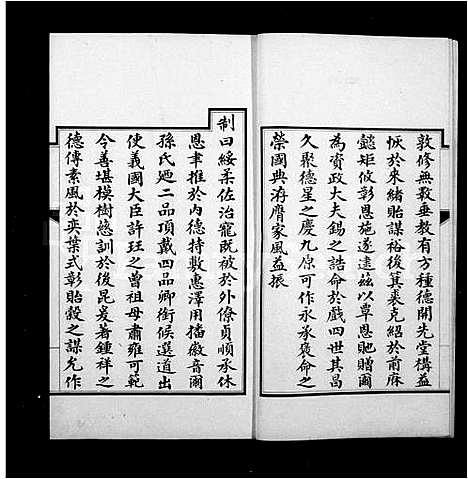 敦修無斁垂教有方種德開先堂構益
恢於來緒貽謀裕後箕裘克紹於前庥
懿矩攸彰恩施遂逮玆以覃恩貤贈爾
為資政大夫錫之誥命於戲四世其昌
久聚德星之慶九原可作永承褒命之
榮國典洊膺家風益振
制曰綏柔佐治寵既被於外僚貞順承休
恩聿推於內德特敷惠澤用播徽音爾
孫氏廼二品頂戴四品卿銜候選道出
使義國大臣許珏之曾祖母肅雍可範
令善堪模樹慈訓於後昆爰著鍾祥之
德傳素風於奕葉式彰貽穀之謀允作